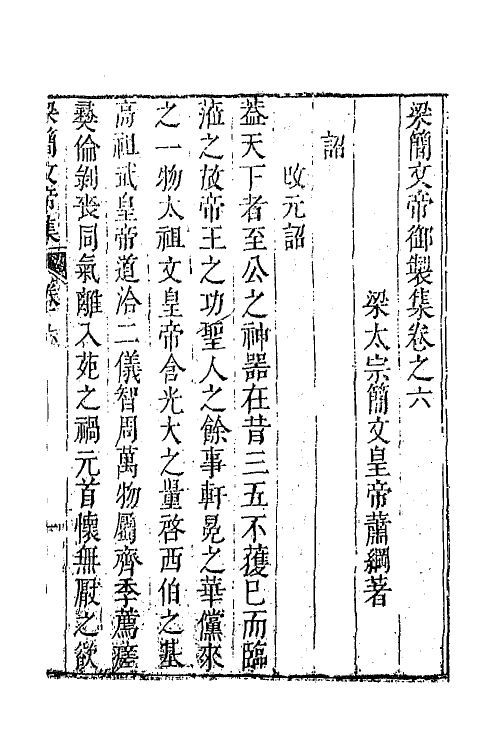 梁簡文帝御製集卷之六
梁太宗簡文皇帝蕭綱著
詔
改元詔
蓋天下者至公之神器在昔三五不獲已而臨
蒞之故帝王之功聖人之餘事軒冕之華儻來
之一物太祖文皇帝含光大之量啓西伯之基
高祖武皇帝道洽二儀智周萬物屬齊季薦瘥
彝倫剝喪同氣離入苑之禍元首懷無厭之欲
梁簡文帝集 卷六 一